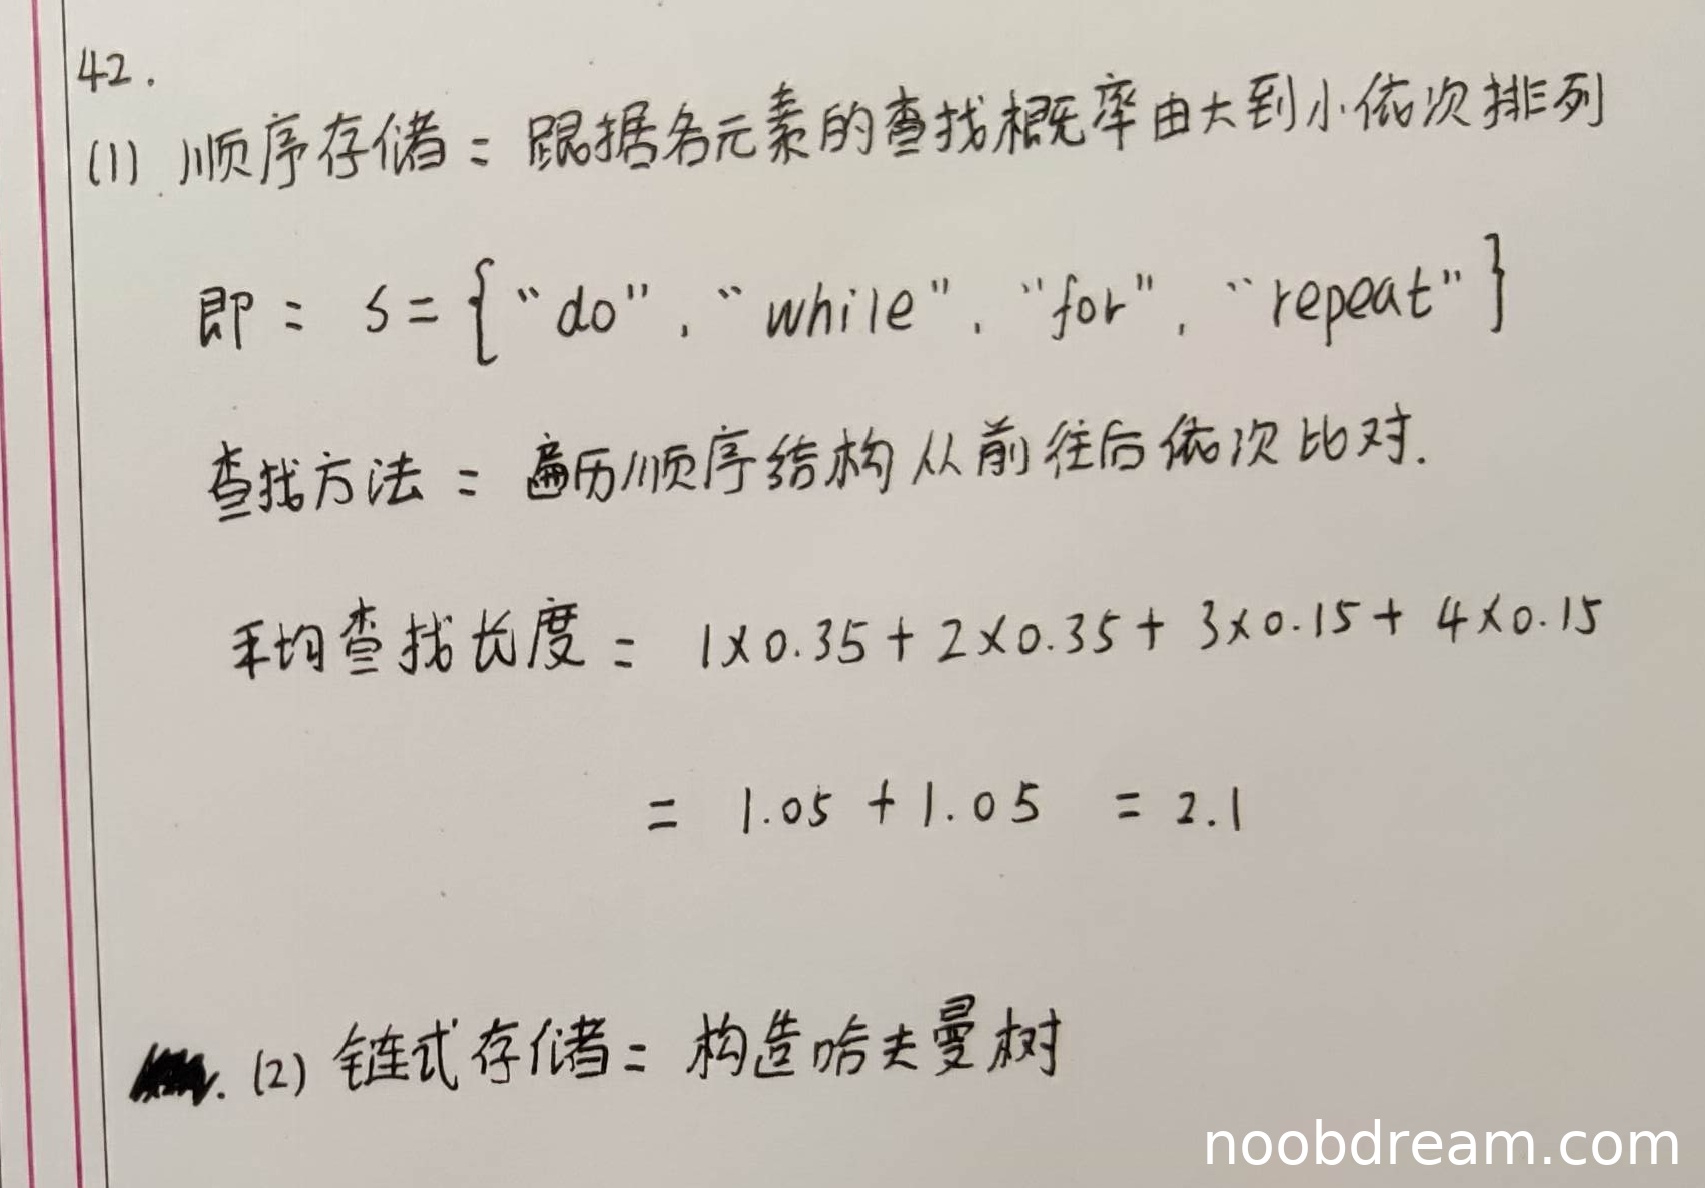 42.
(1) 顺序存储: 跟据各元素的查找概率由大到小依次排列
即: S={“do”, “while”, “for”, “repeat”}
查找方法: 遍历顺序结构从前往后依次比对.
平均查找长度: 1×0.35+2×0.35+3×0.15+4×0.15
= 1.05+1.05 = 2.1
(2) 链式存储: 构造哈夫曼树
noobdream.com